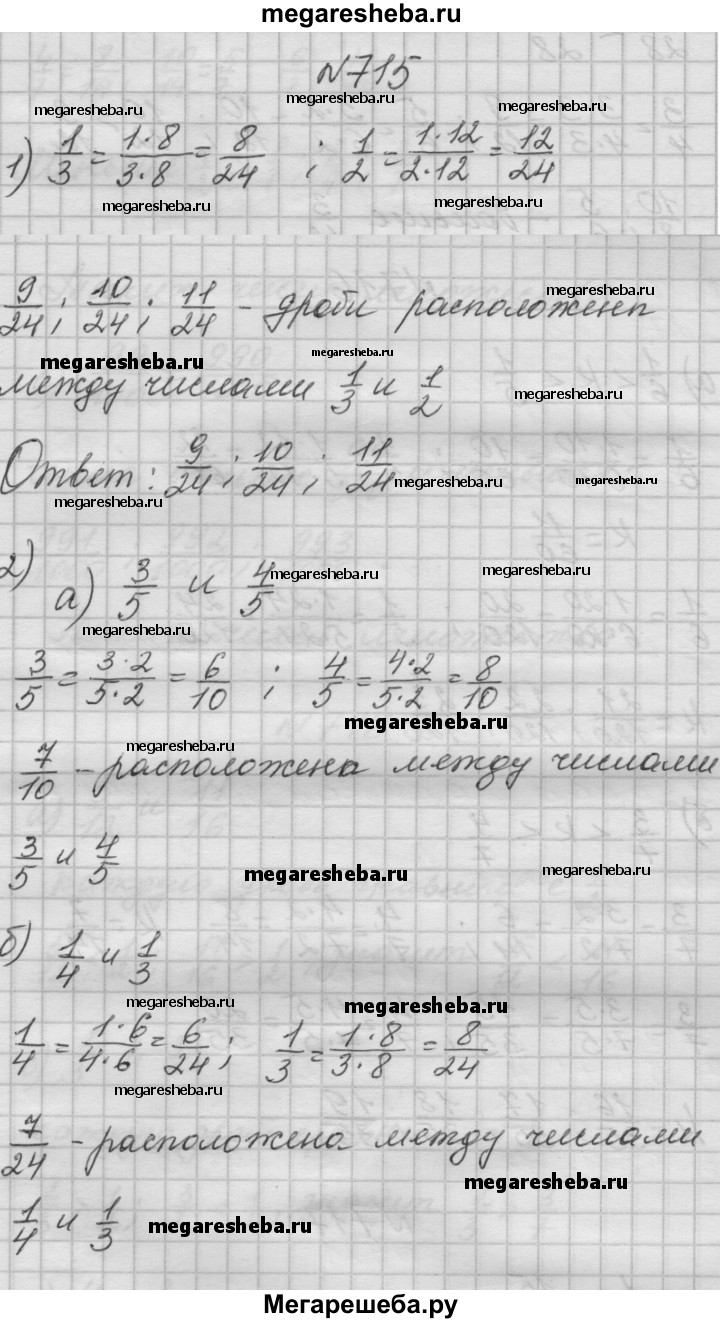 megaresheba.ru
№715
megaresheba.ru megaresheba.ru megaresheba.ru
1) 1/3 = 1·8/3·8 = 8/24 ; 1/2 = 1·12/2·12 = 12/24
megaresheba.ru megaresheba.ru
megaresheba.ru
9/24; 10/24; 11/24 - дроби расположен
megaresheba.ru megaresheba.ru
между числами 1/3 и 1/2
megaresheba.ru
Ответ: 9/24; 10/24; 11/24
megaresheba.ru megaresheba.ru megaresheba.ru
2) а) 3/5 и 4/5
megaresheba.ru megaresheba.ru
megaresheba.ru
3/5 = 3·2/5·2 = 6/10 ; 4/5 = 4·2/5·2 = 8/10
megaresheba.ru
megaresheba.ru
7/10 - расположена между числами
3/5 и 4/5
megaresheba.ru megaresheba.ru
б) 1/4 и 1/3
megaresheba.ru megaresheba.ru
1/4 = 1·6/4·6 = 6/24; 1/3 = 1·8/3·8 = 8/24
megaresheba.ru
7/24 - расположена между числами
megaresheba.ru
1/4 и 1/3
megaresheba.ru
Мегарешеба.ру